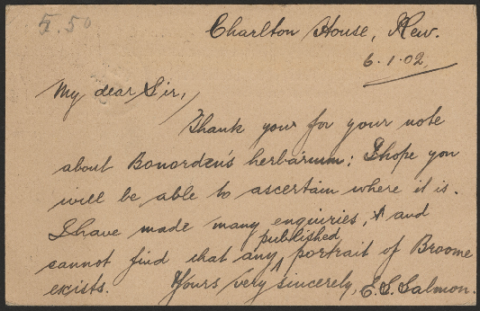 5.50
Charlton House, Kew.
6.1.02.
My dear Sir,
Thank your for your note
about Bonorden's herbarium: I hope you
will be able to ascertain where it is.
I have made many enquiries, & and
cannot find that any published portrait of Broome
exists. Yours very sincerely, E.S.Salmon.